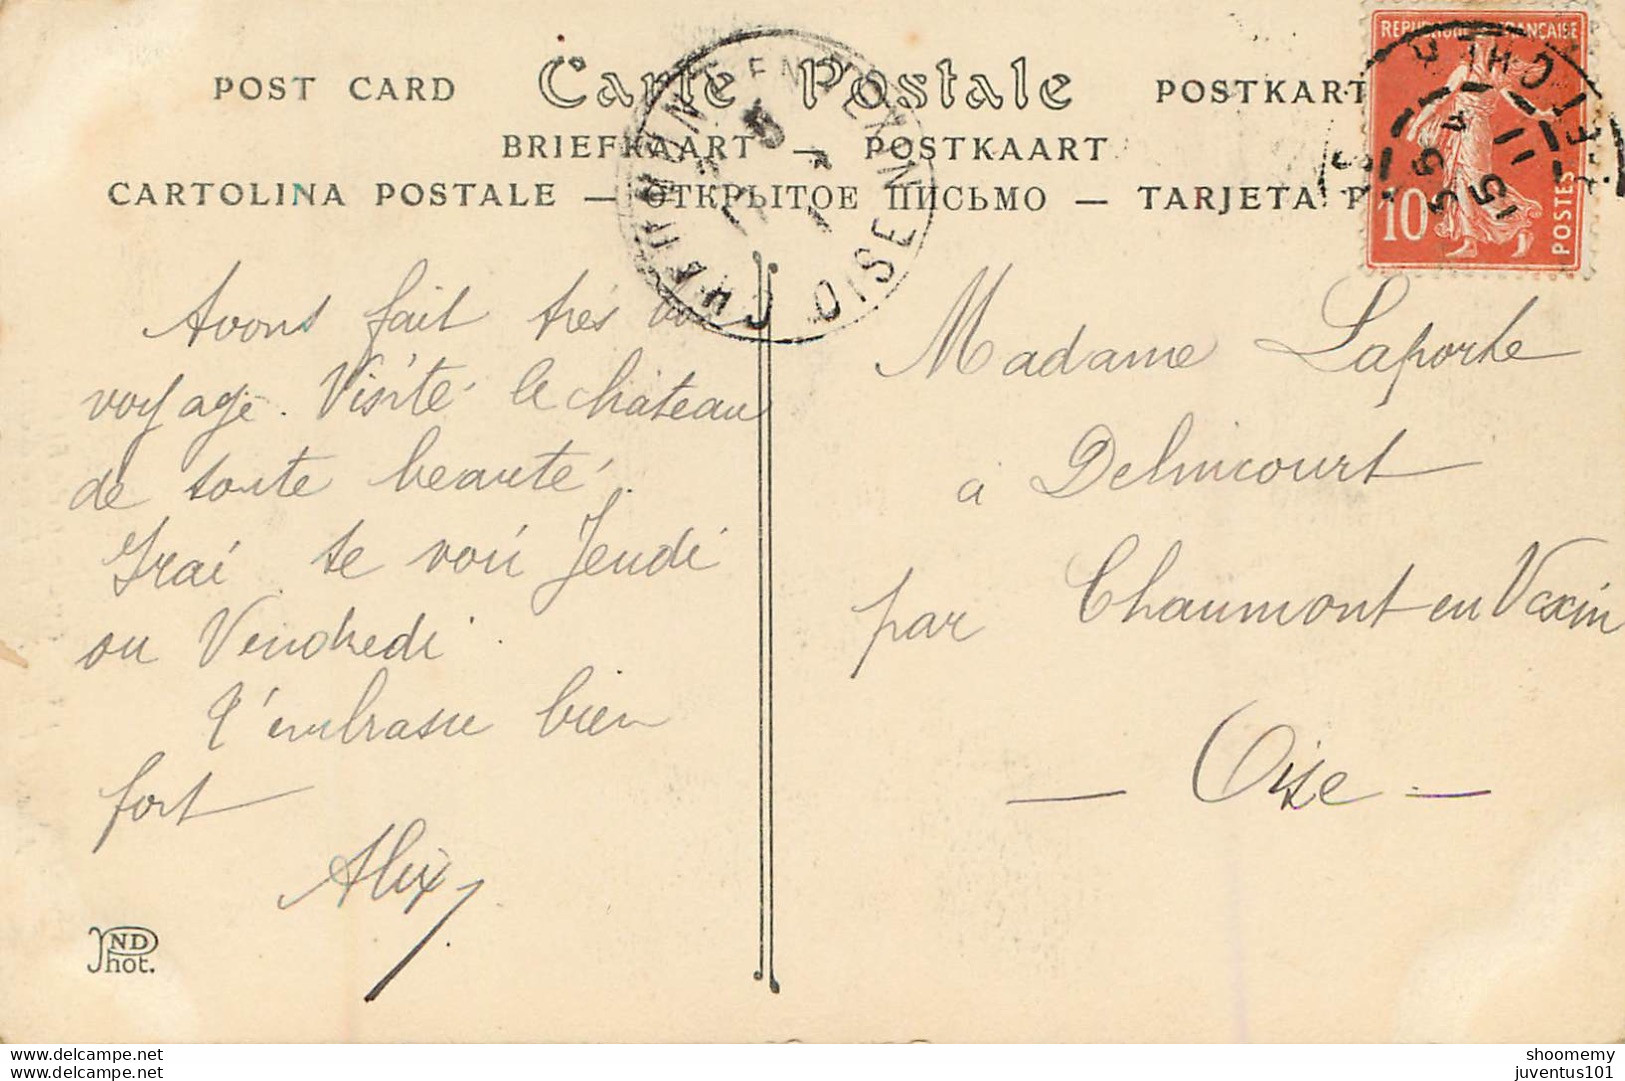 POST CARD Carte Postale POSTKARTE
BRIEFKAART — POSTKAART
CARTOLINA POSTALE — ОТКРЫТОЕ ПИСЬМО — TARJETA P
REPUBLIQUE FRANÇAISE
10
POSTES
CHAUMONT-EN-VEXIN
OISE
Avons fait très bon
voyage. Visité le château
de toute beauté.
Irai te voir Jeudi
ou Vendredi.
T'embrasse bien
fort
Alix
Madame Laporte
à Delincourt
par Chaumont en Vexin
— Oise —
ND
Phot.
www.delcampe.com
www.delcampe.com
shoomemy
juventus101